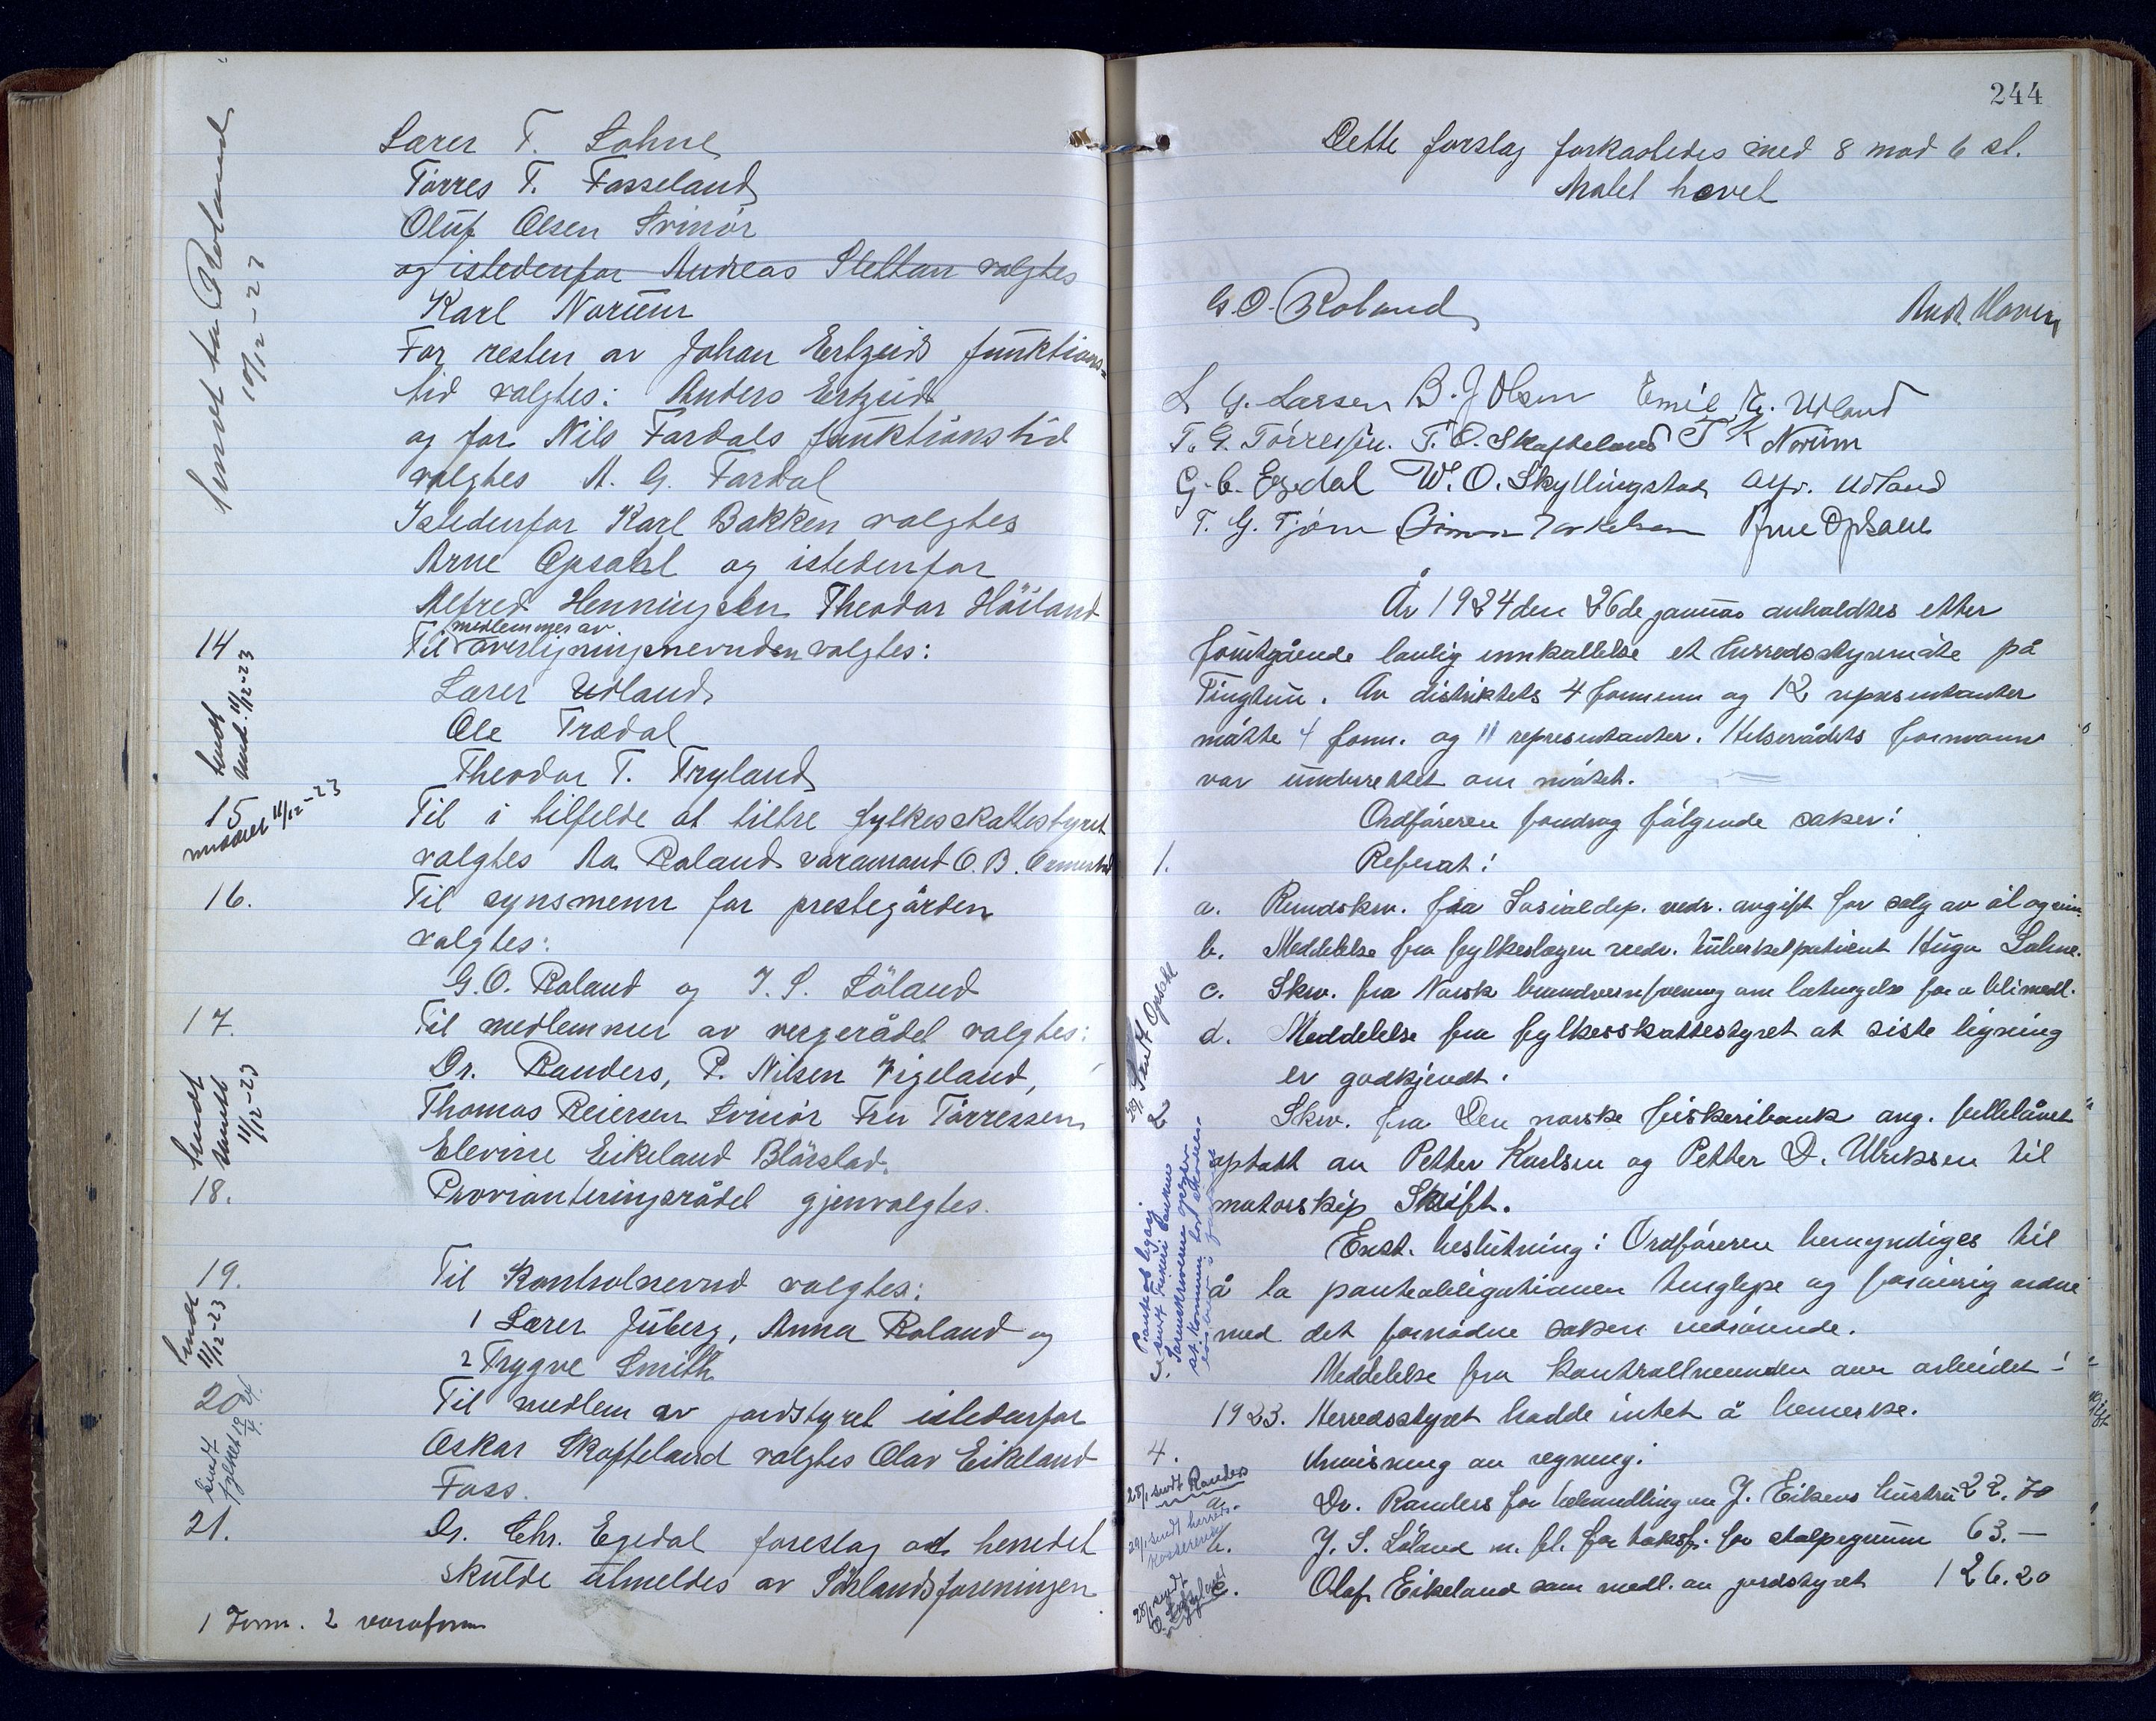 Lærer T. Lohne
Tørres T. Fosseland
Oluf Olsen Svinör
og istedenfor Andreas Slettan valgtes
Karl Norum
For resten av Johan Ertzeids funktions-
tid valgtes: Anders Ertzeid
og for Nils Fardals funktionstid
valgtes A. G. Fardal
Istedenfor Karl Bakken valgtes
Arne Opsahl og istedenfor
Alfred Henningsen Theodor Höiland
sendt
Roland
10/12-23
14.
Til medlemmer av overligningsnevnden valgtes:
Lærer Udland
Ole Trædal
Theodor T. Tryland
sendt
11/12-23
15
Til i tilfelde at tiltre fylkesskattestyret
valgtes Aa Roland varamand O. B.
11/12-23
16.
Til synsmenn for prestegården
valgtes:
G. O. Roland og J. S. Löland
17.
Til medlemmer av vergerådet valgtes:
Dr. Randers, P. Nilsen Vigeland,
Thomas Reiersen Svinör Fru Törressen
Elevine Eikeland Blörstad.
sendt
11/12-23
18.
Provianteringsrådet gjenvalgtes.
19.
Til Kontrolnevnd valgtes:
1 Lærer Juberg, Anna Roland og
2 Trygve Smith
sendt
11/12-23
20
Til medlem av jordstyret istedenfor
Oskar Skofteland valgtes Olav Eikeland
Foss.
sendt
fylket
21.
G. Chr. Egedal foreslog at herredet
skulde utmeldes av Sörlandsforeningen
1 Form. 2 varaform
244
Dette forslag forkastedes med 8 mod 6 st.
Møtet hævet
G. O. Roland
L G. Larsen B. J Olsen Emil K. Udland
T. G. Törressen. T. O. Skofteland T K Norum
G. C. Egedal W. O. Skyllingstad Alf. Udland
T. G. Tjörn Simon Torkelsen Arne Opsahl
År 1924 den 26de januar avholdtes etter
forutgående lovlig innkallelse et herredsstyremöte på
Tingtun. Av distriktets 4 formenn og 12 representanter
mötte 4 form. og 11 representanter. Helserådets formann
var underrettet om mötet.
Ordföreren foredrog fölgende saker:
1.
Referat:
a. Rundskr. fra Sosialdep. vedr. avgift for salg av öl og vin
b. Meddelelse fra fylkeslægen vedr. tuberkelpatient Hugo Lohne.
c. Skr. fra Norsk brandvernforening om betingelse for a bli medl.
d. Meddelelse fra fylkesskattestyret at siste ligning
er godkjendt.
Sendt Opsahl
2
Skr. fra Den norske fiskeribank ang. fellelånet
optatt av Petter Karlsen og Petter D. Ulriksen til
motorskip Skrift.
Enst. beslutning: Ordföreren bemyndiges til
å la panteobligationen tinglyse og forövrig ordne
med det fornödne saken vedrörende.
Meddelelse fra kontrollnevnden om arbeidet i
1923. Herredsstyret hadde intet å bemerke.
4.
Anvisning av regning:
28/1 sendt Randers
a. Dr. Randers for behandling av J. Eikens hustru 22.70
29/1 sendt herreds-
kassereren
b. J. S. Löland m. fl. for taksf. for stolpegrunn 63.-
28/1 sendt
c. Olaf Eikeland som medl. av jordstyret 126.20